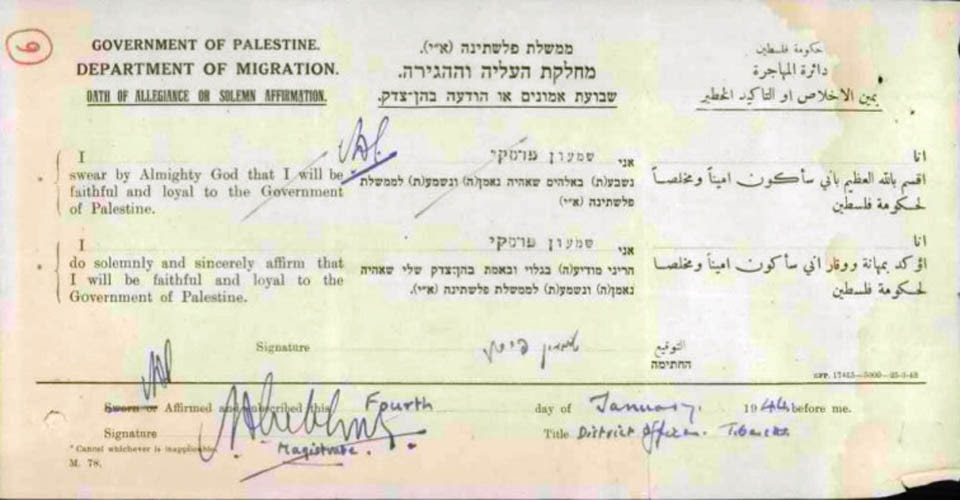 6
GOVERNMENT OF PALESTINE.
DEPARTMENT OF MIGRATION.
OATH OF ALLEGIANCE OR SOLEMN AFFIRMATION.
ממשלת פלשתינה (א״י).
מחלקת העליה וההגירה.
שבועת אמונים או הודעה בהן־צדק.
حكومة فلسطين
دائرة المهاجرة
يمين الاخلاص او التاكيد الخطير
I
swear by Almighty God that I will be
faithful and loyal to the Government
of Palestine.
אני שמעון
נשבע(ת) באלהים שאהיה נאמן(ה) ונשמע(ת) לממשלת
פלשתינה (א״י)
انا
اقسم بالله العظيم باني سأكون اميناً ومخلصاً
لحكومة فلسطين
I
do solemnly and sincerely affirm that
I will be faithful and loyal to the
Government of Palestine.
אני שמעון
הריני מודיע(ה) בגלוי ובאמת בהן־צדק שלי שאהיה
נאמן(ה) ונשמע(ת) לממשלת פלשתינה (א״י).
انا
اؤكد بمهانة ووقار اني سأكون اميناً ومخلصا
لحكومة فلسطين
Signature
שמעון
التوقيع
החתימה
GPP. 17415—5000—25-3-43
Sworn or Affirmed and subscribed this Fourth day of January. 1944 before me.
Signature Title District Officer. Tiberias.
Magistrate.
* Cancel whichever is inapplicable.
M. 78.